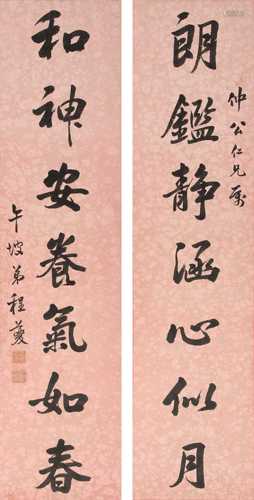 朗鑑静涵心似月
仲公仁兄屬
和神安養氣如春
午坡弟程夔